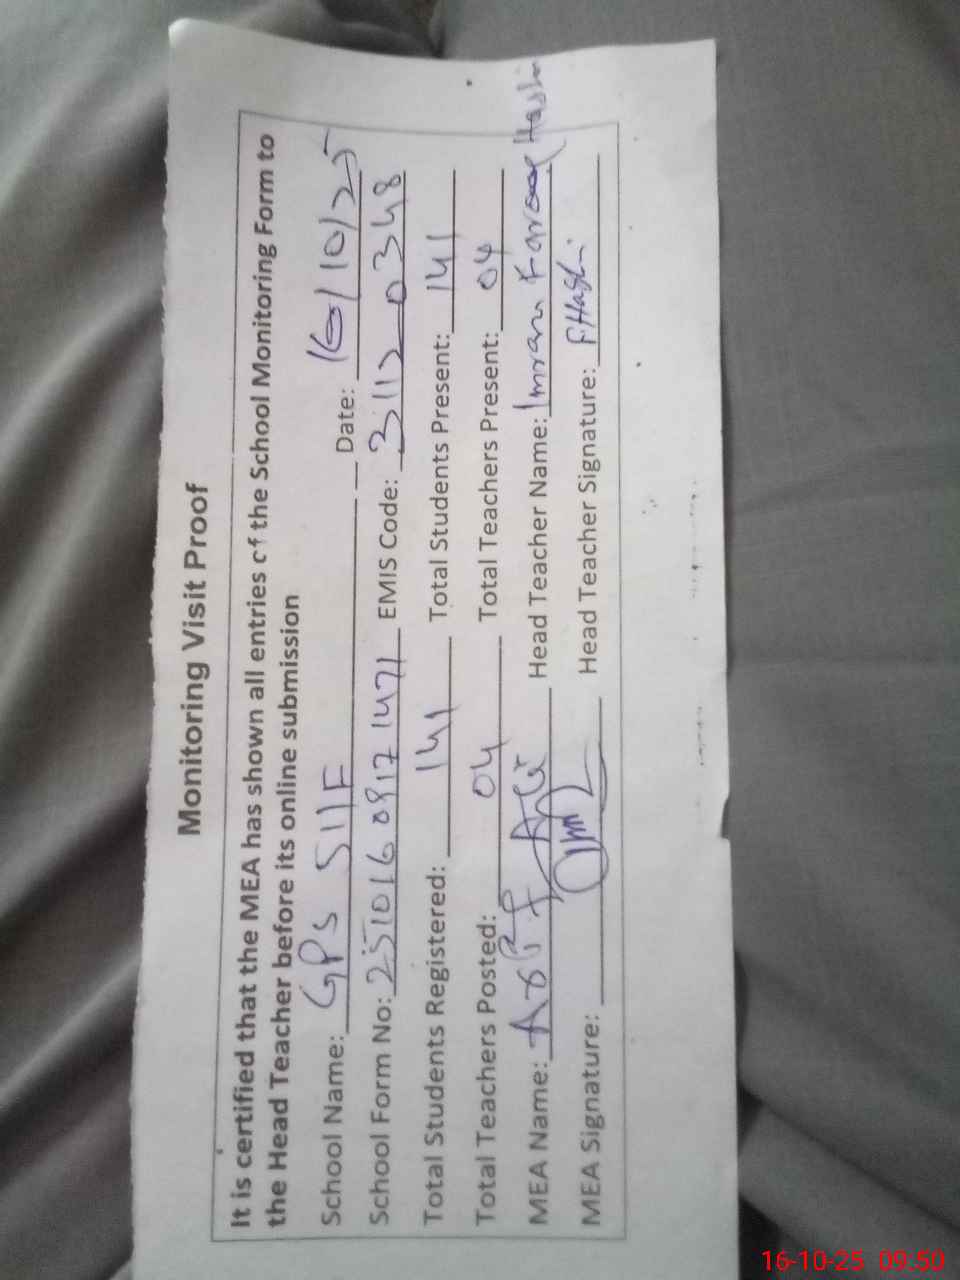 Monitoring Visit Proof
It is certified that the MEA has shown all entries of the School Monitoring Form to
the Head Teacher before its online submission
School Name: GPS 511F Date: 16/10/25
School Form No: 25101609171471 EMIS Code: 31120348
Total Students Registered: 141 Total Students Present: 141
Total Teachers Posted: 04 Total Teachers Present: 04
MEA Name: Asif Ali Head Teacher Name: Imran Farooq Hashmi
MEA Signature: Head Teacher Signature:
16-10-25 09.50